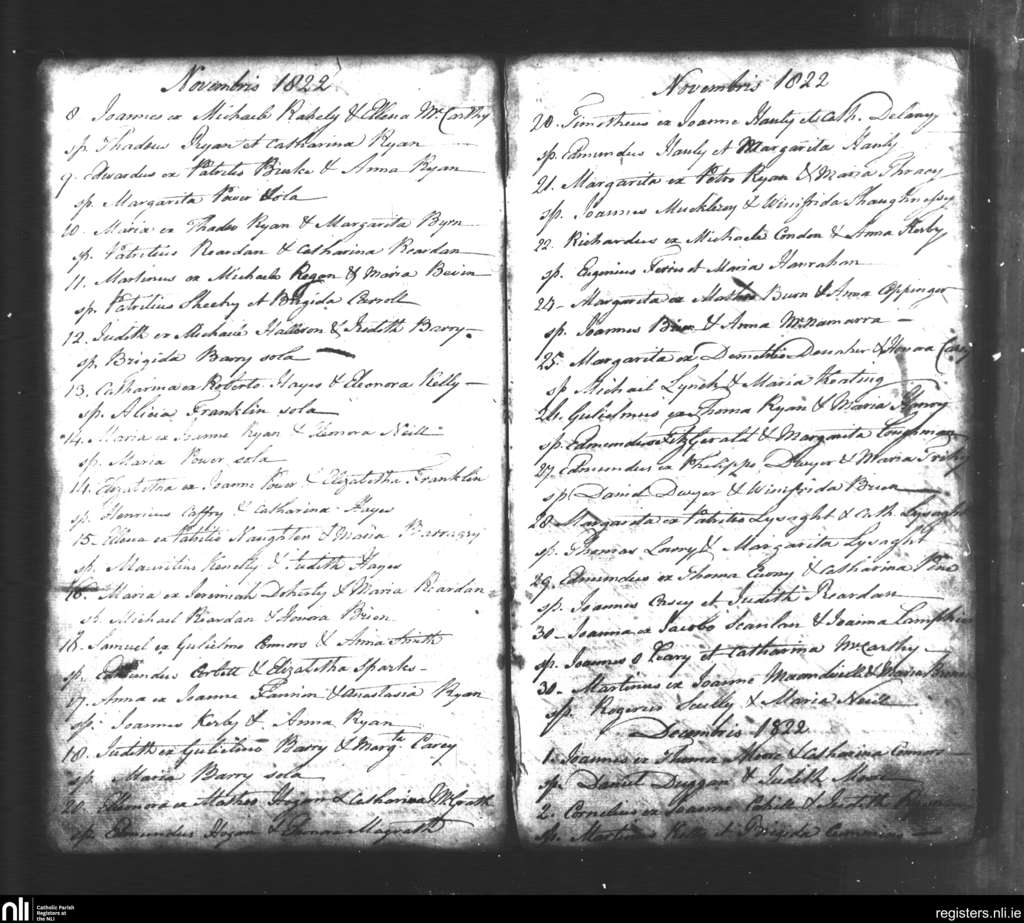 Novembris 1822
8 Joannes ex Michaele Rahely & Ellena McCarthy
sp. Thadeus Ryan et Catharina Ryan
9. Edvardus ex Patritio Burke & Anna Ryan
sp. Margarita Power Sola
10. Maria ex Thadeo Ryan & Margarita Byrn
sp. Patritius Reardan & Catharina Reardan
11. Martinus ex Michaele Regan & Maria Bevin
sp. Patritius Sheehy et Brigida Carroll
12. Judith ex Michaele Halloron & Judith Barry
sp. Brigida Barry sola
13. Catharina ex Roberto Hayes & Eleonora Kelly
sp. Alicia Franklin sola
14. Maria ex Joanne Ryan & Honora Neill
sp. Maria Power sola
14. Elizabetha ex Joanne Power & Elizabetha Franklin
sp. Henricus Caffry & Catharina Hayes
15. Ellena ex Patritio Naughten & Maria
sp. Mauritius Kenelly & Judith Hayes
16. Maria ex Jeremiah Doherty & Maria Reardan
sp. Michael Reardan & Honora Brien
18. Samuel ex Gulielmo Connors & Anna
sp. Edmundus Corbett & Elizabetha Sparks
17. Anna ex Joanne Fannion & Anastasia Ryan
sp. Joannes Kerby & Anna Ryan
18. Judith ex Gulielmo Barry & Margte Carey
sp. Maria Barry sola
20. Elleonora ex Matheo Hogan & Catharina McGrath
sp. Edmundus Hogan & Honora Magrath
Novembris 1822
20. Timotheus ex Joanne Hauly et Cath. Delany
sp. Edmundus Hauly et Margarita Hauly
21. Margarita ex Petro Ryan & Maria
sp. Joannes & Winifrida Shaughnessy
22. Richardus ex Michaele Condon & Anna Kerby
sp. Eugenius et Maria Hanrahan
24. Margarita ex Matheo Burn & Anna Coppinger
sp. Joannes & Anna McNamarra
25. Margarita ex Demetrio & Honora Casey
sp. Michail Lynch & Maria Keating
26. Gulielmus ex Thoma Ryan & Maria
sp. Edmundus FitzGerald & Margarita Loughman
27. Edmundus ex Philippo Dwyer & Maria
sp. Daniel Dwyer & Winifrida Brien
28. Margarita ex Patritio Lysaght & Cath. Lysaght
sp. Thomas Larry & Margarita Lysaght
29. Edmundus ex Thoma & Catharina
sp. Joannes Casey et Judith Reardan
30. Joanna ex Jacobo Scanlan & Joanna Lamphier
sp. Joannes O Leary et Catharina McCarthy
30. Martinus ex Joanne & Maria
sp. Rogerius Scully & Maria Neill
Decembris 1822
1. Joannes ex Thoma Moore & Catharina Connors
sp. Daniel Duggan & Judith Moore
2. Cornelius ex Joanne Cahill & Judith
sp. Martinus Kelly et Brigida
nli Catholic Parish Registers at the NLI
registers.nli.ie